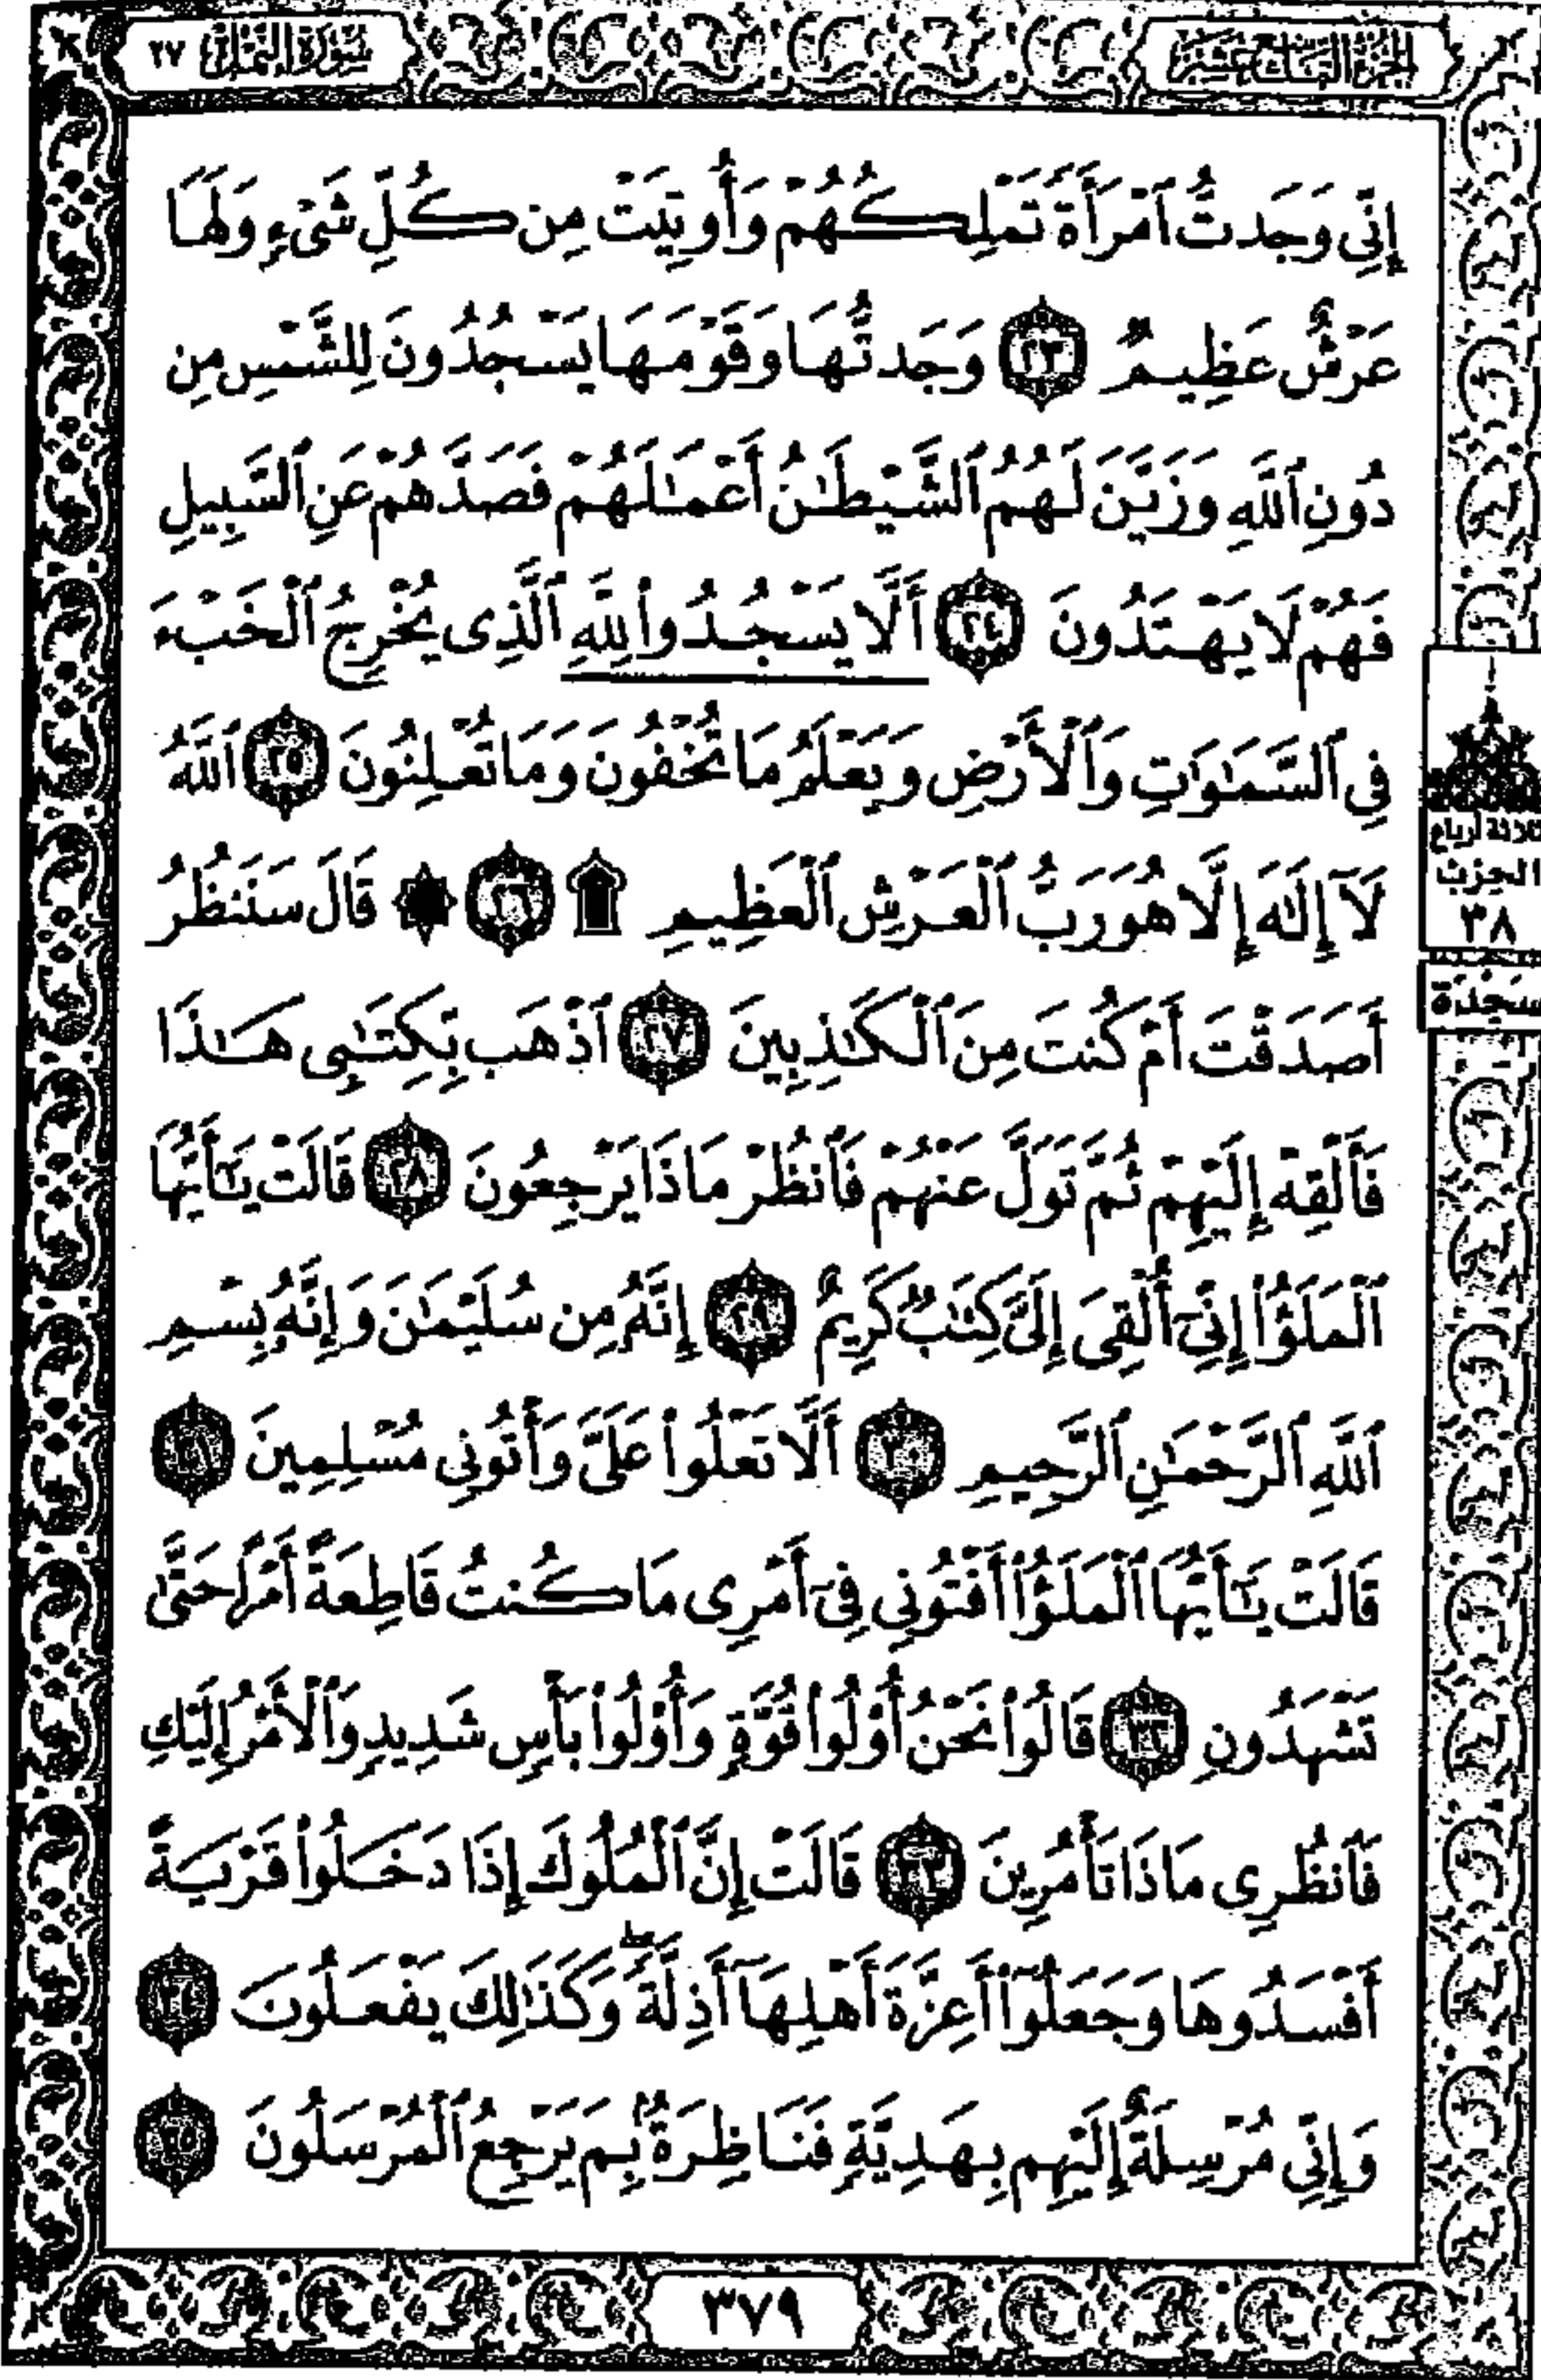 الجزء التاسع عشر
سورة النمل ٢٧
إِنِّى وَجَدتُّ ٱمْرَأَةً تَمْلِكُهُمْ وَأُوتِيَتْ مِن كُلِّ شَىْءٍ وَلَهَا
عَرْشٌ عَظِيمٌ ٢٣ وَجَدتُّهَا وَقَوْمَهَا يَسْجُدُونَ لِلشَّمْسِ مِن
دُونِ ٱللَّهِ وَزَيَّنَ لَهُمُ ٱلشَّيْطَٰنُ أَعْمَٰلَهُمْ فَصَدَّهُمْ عَنِ ٱلسَّبِيلِ
فَهُمْ لَا يَهْتَدُونَ ٢٤ أَلَّا يَسْجُدُوا۟ لِلَّهِ ٱلَّذِى يُخْرِجُ ٱلْخَبْءَ
فِى ٱلسَّمَٰوَٰتِ وَٱلْأَرْضِ وَيَعْلَمُ مَا تُخْفُونَ وَمَا تُعْلِنُونَ ٢٥ ٱللَّهُ
لَآ إِلَٰهَ إِلَّا هُوَ رَبُّ ٱلْعَرْشِ ٱلْعَظِيمِ ۩ ٢٦ ۞ قَالَ سَنَنظُرُ
أَصَدَقْتَ أَمْ كُنتَ مِنَ ٱلْكَٰذِبِينَ ٢٧ ٱذْهَب بِّكِتَٰبِى هَٰذَا
فَأَلْقِهْ إِلَيْهِمْ ثُمَّ تَوَلَّ عَنْهُمْ فَٱنظُرْ مَاذَا يَرْجِعُونَ ٢٨ قَالَتْ يَٰٓأَيُّهَا
ٱلْمَلَؤُا۟ إِنِّىٓ أُلْقِىَ إِلَىَّ كِتَٰبٌ كَرِيمٌ ٢٩ إِنَّهُۥ مِن سُلَيْمَٰنَ وَإِنَّهُۥ بِسْمِ
ٱللَّهِ ٱلرَّحْمَٰنِ ٱلرَّحِيمِ ٣٠ أَلَّا تَعْلُوا۟ عَلَىَّ وَأْتُونِى مُسْلِمِينَ ٣١
قَالَتْ يَٰٓأَيُّهَا ٱلْمَلَؤُا۟ أَفْتُونِى فِىٓ أَمْرِى مَا كُنتُ قَاطِعَةً أَمْرًا حَتَّىٰ
تَشْهَدُونِ ٣٢ قَالُوا۟ نَحْنُ أُو۟لُوا۟ قُوَّةٍ وَأُو۟لُوا۟ بَأْسٍ شَدِيدٍ وَٱلْأَمْرُ إِلَيْكِ
فَٱنظُرِى مَاذَا تَأْمُرِينَ ٣٣ قَالَتْ إِنَّ ٱلْمُلُوكَ إِذَا دَخَلُوا۟ قَرْيَةً
أَفْسَدُوهَا وَجَعَلُوٓا۟ أَعِزَّةَ أَهْلِهَآ أَذِلَّةً ۖ وَكَذَٰلِكَ يَفْعَلُونَ ٣٤
وَإِنِّى مُرْسِلَةٌ إِلَيْهِم بِهَدِيَّةٍ فَنَاظِرَةٌۢ بِمَ يَرْجِعُ ٱلْمُرْسَلُونَ ٣٥
ثلاثة أرباع
الحزب
٣٨
سجدة
٣٧٩